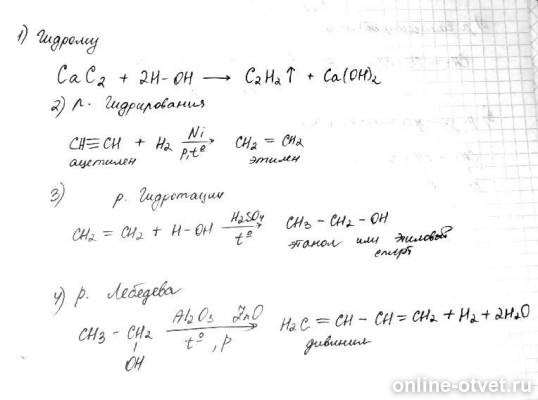 1) Гидролиз
CaC2 + 2H-OH → C2H2↑ + Ca(OH)2
2) р. Гидрирования
CH≡CH + H2 Ni p,t° → CH2 = CH2
ацетилен этилен
3) р. Гидротации
CH2 = CH2 + H-OH H2SO4 t° → CH3 - CH2 - OH
этанол или этиловой
спирт
4) р. Лебедева
CH3 - CH2 Al2O3 ZnO t°, p → H2C = CH - CH = CH2 + H2 + 2H2O
OH дивинил
online-otvet.ru